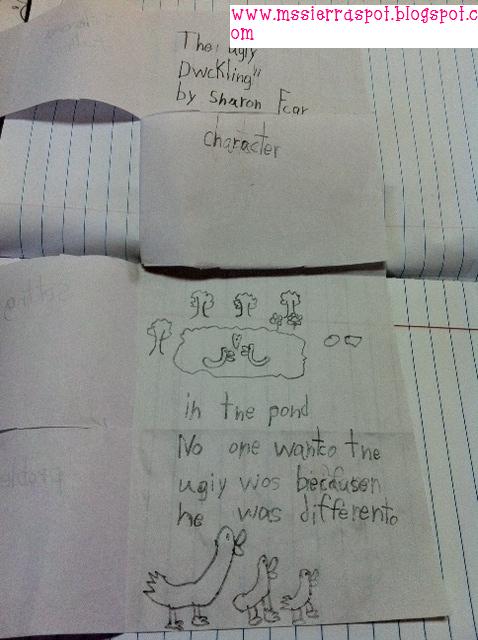 www.mssierraspot.blogspot.c
om
The ugly
Dwckling"
by Sharon Fear
character
in the pond
No one wanto the
ugiy wos because
he was differento